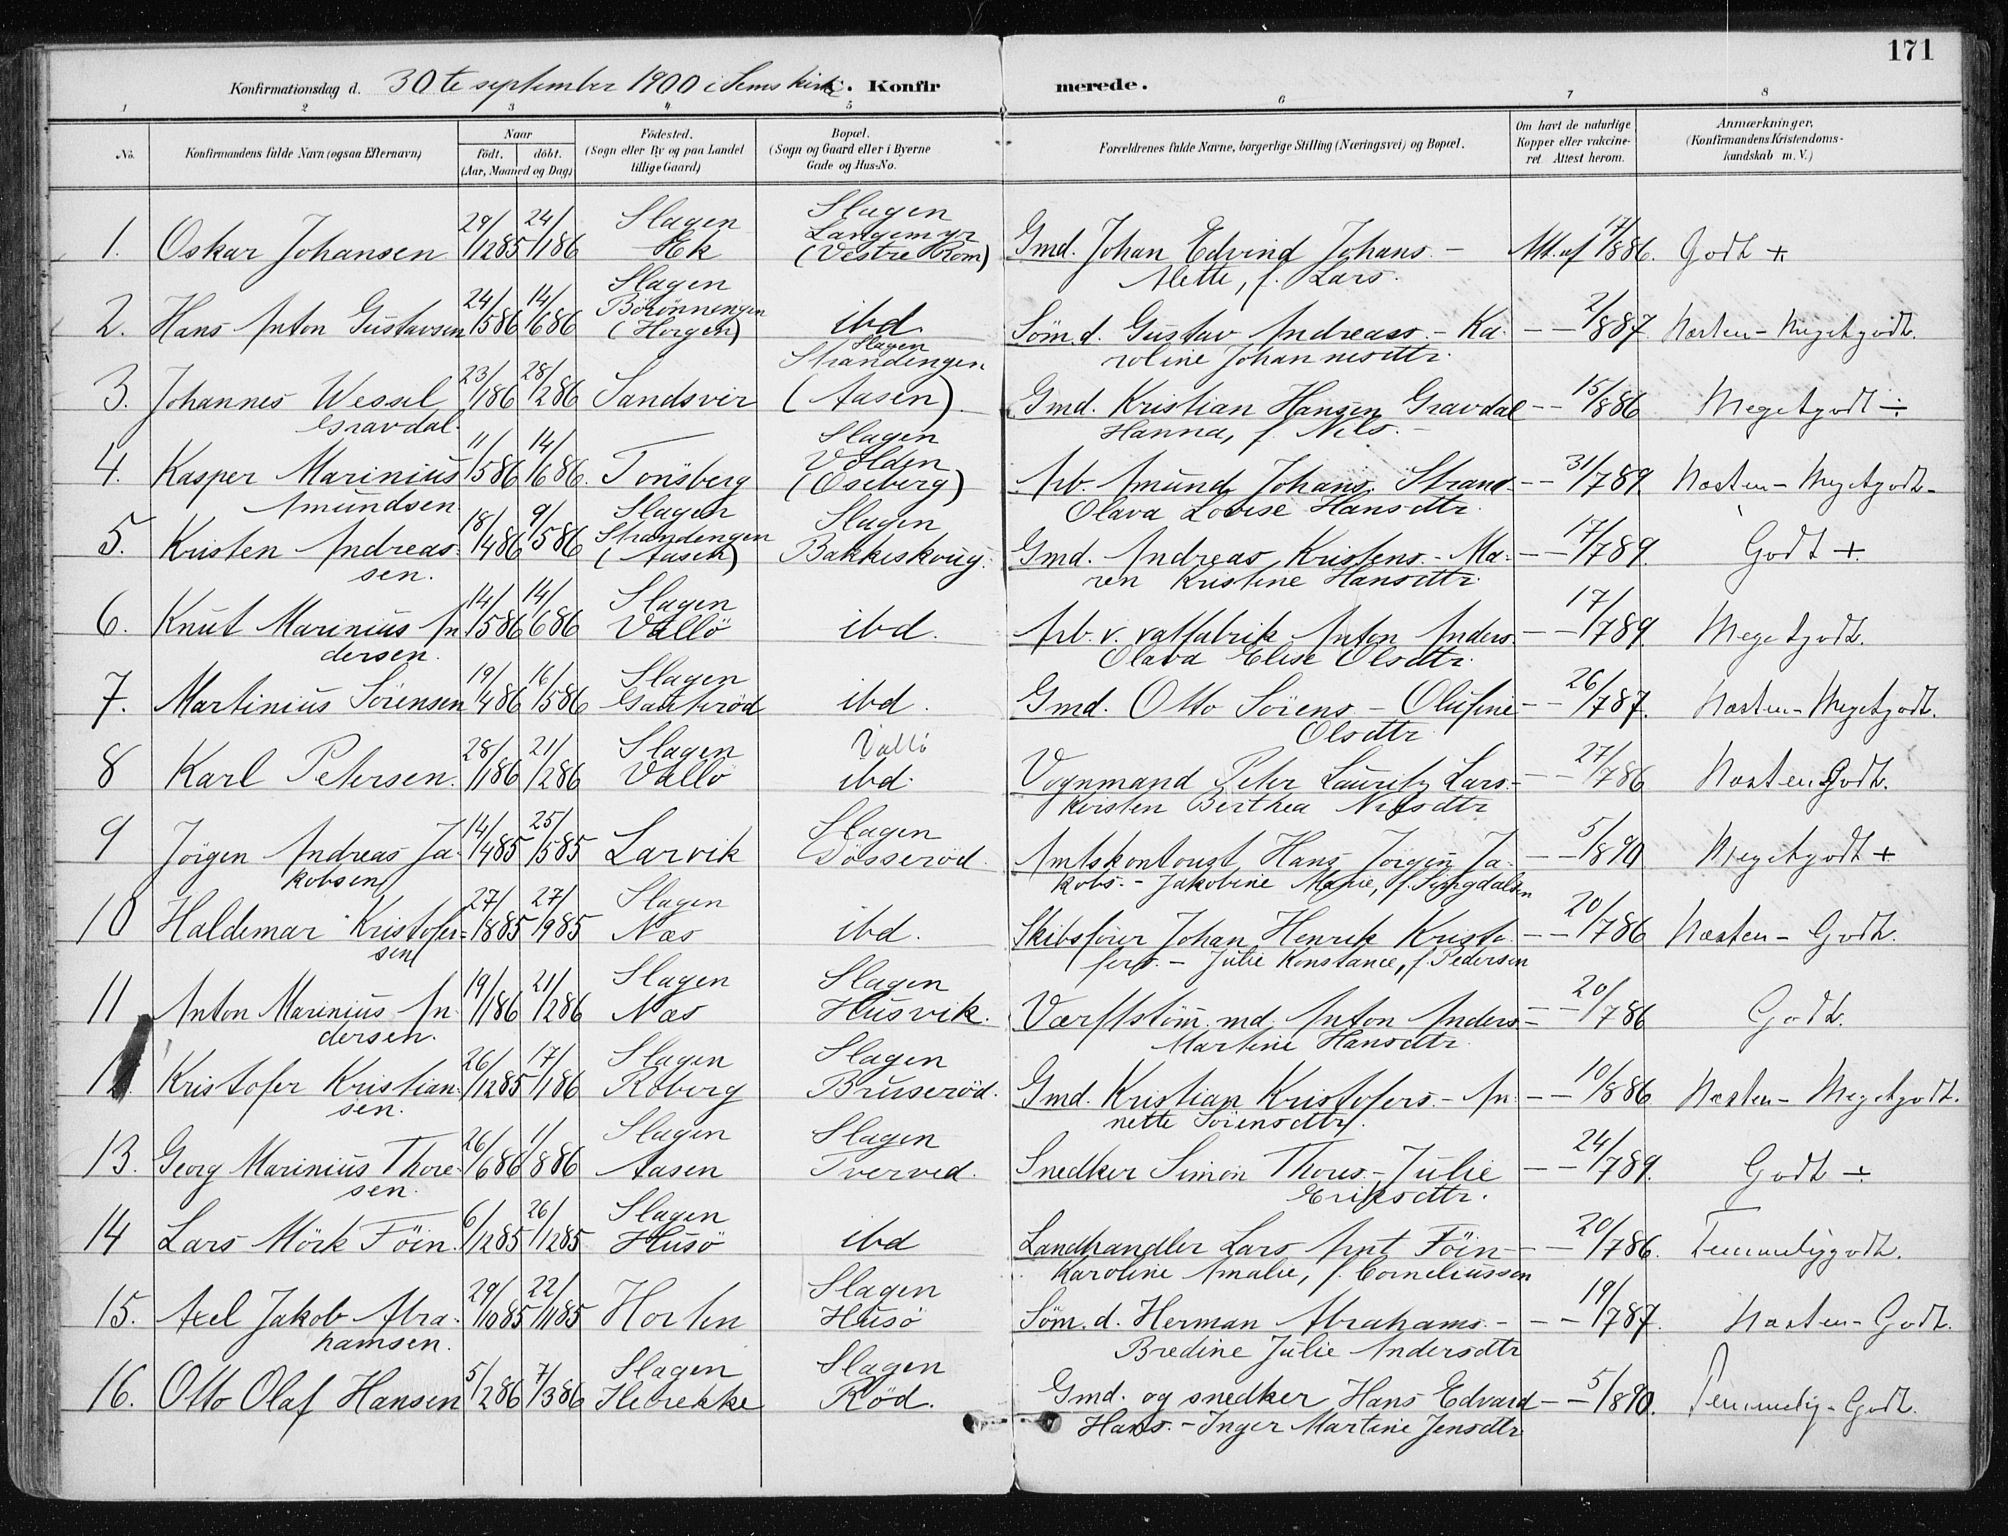 171
Konfirmationsdag d. 30te september 1900 i Sems kirke C. Konfirmerede.
1 2 3 4 5 6 7 8
No. Konfirmandens fulde Navn (ogsaa Efternavn) Naar födt. döbt. (Aar, Maaned og Dag) Födested. (Sogn eller By og paa Landet tillige Gaard) Bopæl. (Sogn og Gaard eller i Byerne Gade og Hus-No. Forældrenes fulde Navne, borgerlige Stilling (Næringsvei) og Bopæl. Om havt de naturlige Kopper eller vakcineret. Attest herom. Anmærkninger. (Konfirmandens Kristendomskundskab m. V.)
1. Oskar Johansen 29/1285 24/186 Slagen Ek Slagen Langemyr (Vestre Rom) Gmd. Johan Edvind Johans. - Alette, f. Lars. Att. af 17/886. Godt +
2. Hans Anton Gustavsen 24/586 14/686 Slagen Börönningen (Horgen) ibd. Söm.d. Gustav Andreas - Karoline Johannesdtr. - - 2/887. Næsten - Megetgodt.
3. Johannes Wessel Gravdal 23/186 28/286 Sandsvir Slagen Strandengen (Aasen) Gmd. Kristian Hansen Gravdal Hanna, f. Nils. - - - 15/886 Megetgodt ÷
4. Kasper Marinius Amundsen 11/586 14/686. Tonsberg Slagen Volden (Oseberg) Arb. Amund Johans. Strand - Olava Lovise Hansdtr. - - 31/789. Næsten - Megetgodt -
5. Kristen Andreassen. 18/486 9/586 Slagen Strandengen (Aasen) Slagen Bakkeskoug. Gmd. Andreas Kristens. - Maren Kristine Hansdtr. - - 17/789. Godt +
6. Knut Marinius Andersen. 14/586 14/686 Slagen Vallö ibd. Arb. v. valfabrik Anton Anders. Olava Elise Olsdtr. - - 17/789. Megetgodt.
7. Martinius Sörensen 19/486 16/586 Slagen Gauteröd ibd. Gmd. Otto Sörens - Olufine Olsdtr - - 26/787. Næsten - Megetgodt.
8 Karl Petersen. 28/186 21/286 Slagen Vallö Vallö ibd. Vognmand Peter Lauritz Lars. - Kirsten Berthea Nilsdtr - - 27/786 Næsten Godt.
9 Jörgen Andreas Jakobsen 14/485 25/585 Larvik Slagen Dösseröd. Amtskontorist Hans Jörgen Jakobs. - Jakobine Marie, f. Lyngdalsen - - 5/890 Megetgodt +
10 Haldemar Kristofersen 27/885 27/985 Slagen Næs ibd. Skibsförer Johan Henrik Kristofers. - Julie Konstance, f. Pedersen - - 20/786 Næsten - Godt.
11 Anton Marinius Andersen. 19/186 21/286 Slagen Næs Slagen Husvik. Værfttöm.md. Anton Anders - Martine Hansdtr. - - 20/786 Godt.
12. Kristofer Kristiansen. 26/1285 17/186 Slagen Roberg Slagen Bruseröd. Gmd. Kristian Kristofers. - Annette Sörensdtr. - - 10/886 Næsten - Megetgodt.
13. Georg Marinius Thoresen. 26/686 1/886 Slagen Aasen Slagen Tverved. Snedker Simon Thores. - Julie Eriksdtr. - - 24/789. Godt ÷
14 Lars Mörk Föin. 6/1285 26/1285. Slagen Husö ibd Landhandler Lars Arnt Föin - Karoline Amalie, f. Corneliussen - - 20/786. Temmeliggodt.
15. Axel Jakob Abrahamsen. 29/1085 22/1185 Horten Slagen Husö Söm.d. Herman Abrahams. - Bredine Julie Andersdtr - - 19/787. Næsten - Godt.
16. Otto Olaf Hansen 5/286 7/386 Slagen Ilebrekke Slagen Röd. Gmd. og snedker Hans Edvard Hans. - Inger Martine Jensdtr - - 5/890. Temmelig - Godt.